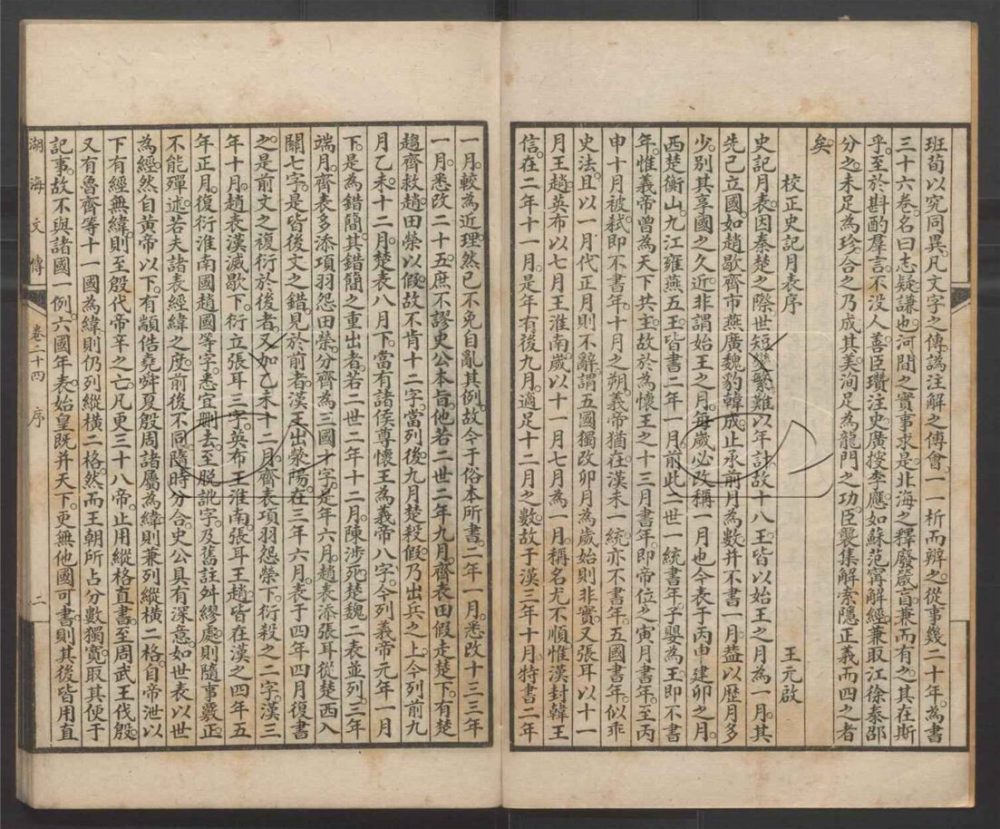 班荀以究同異凡文字之傳譌注解之傅會一一析而辨之從事幾二十年為書
三十六卷名曰志疑謙也河間之實事求是北海之釋廢箴肓兼而有之其在斯
乎至於斟酌羣言不沒人善臣瓚注史廣搜李應如蘇范甯解經兼取江徐泰邵
分之未足為珍合之乃成其美洵足為龍門之功臣襲集解索隱正義而四之者
矣
校正史記月表序
王元啟
史記月表因秦楚之際世短變繁難以年計故十八王皆以始王之月為一月其
先已立國如趙歇齊市燕廣魏豹韓成止承前月為數并不書一月葢以歷月多
少別其享國之久近非謂始王之月每歲必改稱一月也今表于丙申建卯之月
西楚衡山九江雍燕五王皆書二年一月前此二世一統書年子嬰為王即不書
年惟義帝曾為天下共主故於為懷王之十三月書年即帝位之寅月書年至丙
申十月被弒即不書年十月之朔義帝猶在漢未一統亦不書年五國書年似乖
史法且以一月代正月則不辭謂五國獨改卯月為歲始則非實又張耳以十一
月王趙英布以七月王淮南歲以十一月七月為一月稱名尤不順惟漢封韓王
信在二年十一月是年有後九月適足十二月之數故于漢三年十月特書二年
一月較為近理然已不免自亂其例故今于俗本所書二年一月悉改十三三年
一月悉改二十五庶不謬史公本旨他若二世二年九月齊表田假走楚下有楚
趨齊救趙田榮以假故不肯十二字當列後九月楚殺假乃出兵之上今列前九
月乙未十二月楚表八月下當有諸侯尊懷王為義帝八字今列義帝元年一月
下是為錯簡其錯簡之重出者若二世二年十二月陳涉死楚魏二表並列三年
端月齊表多添項羽怨田榮分齊為三國十字是年六月趙表添張耳從楚西入
關七字是皆後文之錯見於前者漢王出滎陽在三年六月表于四年四月復書
之是前文之複衍於後者又如乙未十二月齊表項羽怨榮下衍殺之二字漢三
年十月趙表漢滅歇下衍立張耳三字英布王淮南張耳王趙皆在漢之四年五
年正月復衍淮南國趙國等字悉宜刪去至脫訛字及舊註舛繆處則隨事覈正
不能殫述若夫諸表經緯之度前後不同隨時分合史公具有深意如世表以世
為經然自黃帝以下有顓俈堯舜夏殷周諸屬為緯則兼列縱橫二格自帝泄以
下有經無緯則至殷代帝辛之亡凡更三十八帝止用縱格直書至周武王伐殷
又有魯齊等十一國為緯則仍列縱橫二格然而王朝所占分數獨寬取其便于
記事故不與諸國一例六國年表始皇既并天下更無他國可書則其後皆用直
湖海文傳
卷二十四 序
二